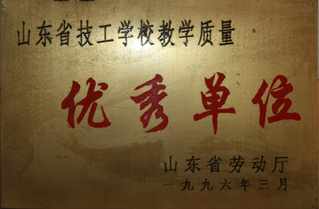 山东省技工学校教学质量
优秀单位
山东省劳动厅
一九九六年三月